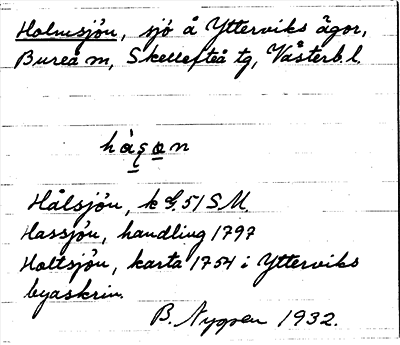 Holmsjön, sjö å Ytterviks ägor,
Bureå m, Skellefteå tg, Västerb. l.
Hålsjön, k 51 S M.
Hassjön, handling 1797
Holtsjön, karta 1754 i Ytterviks
byaskrin.
B. Nygren 1932.